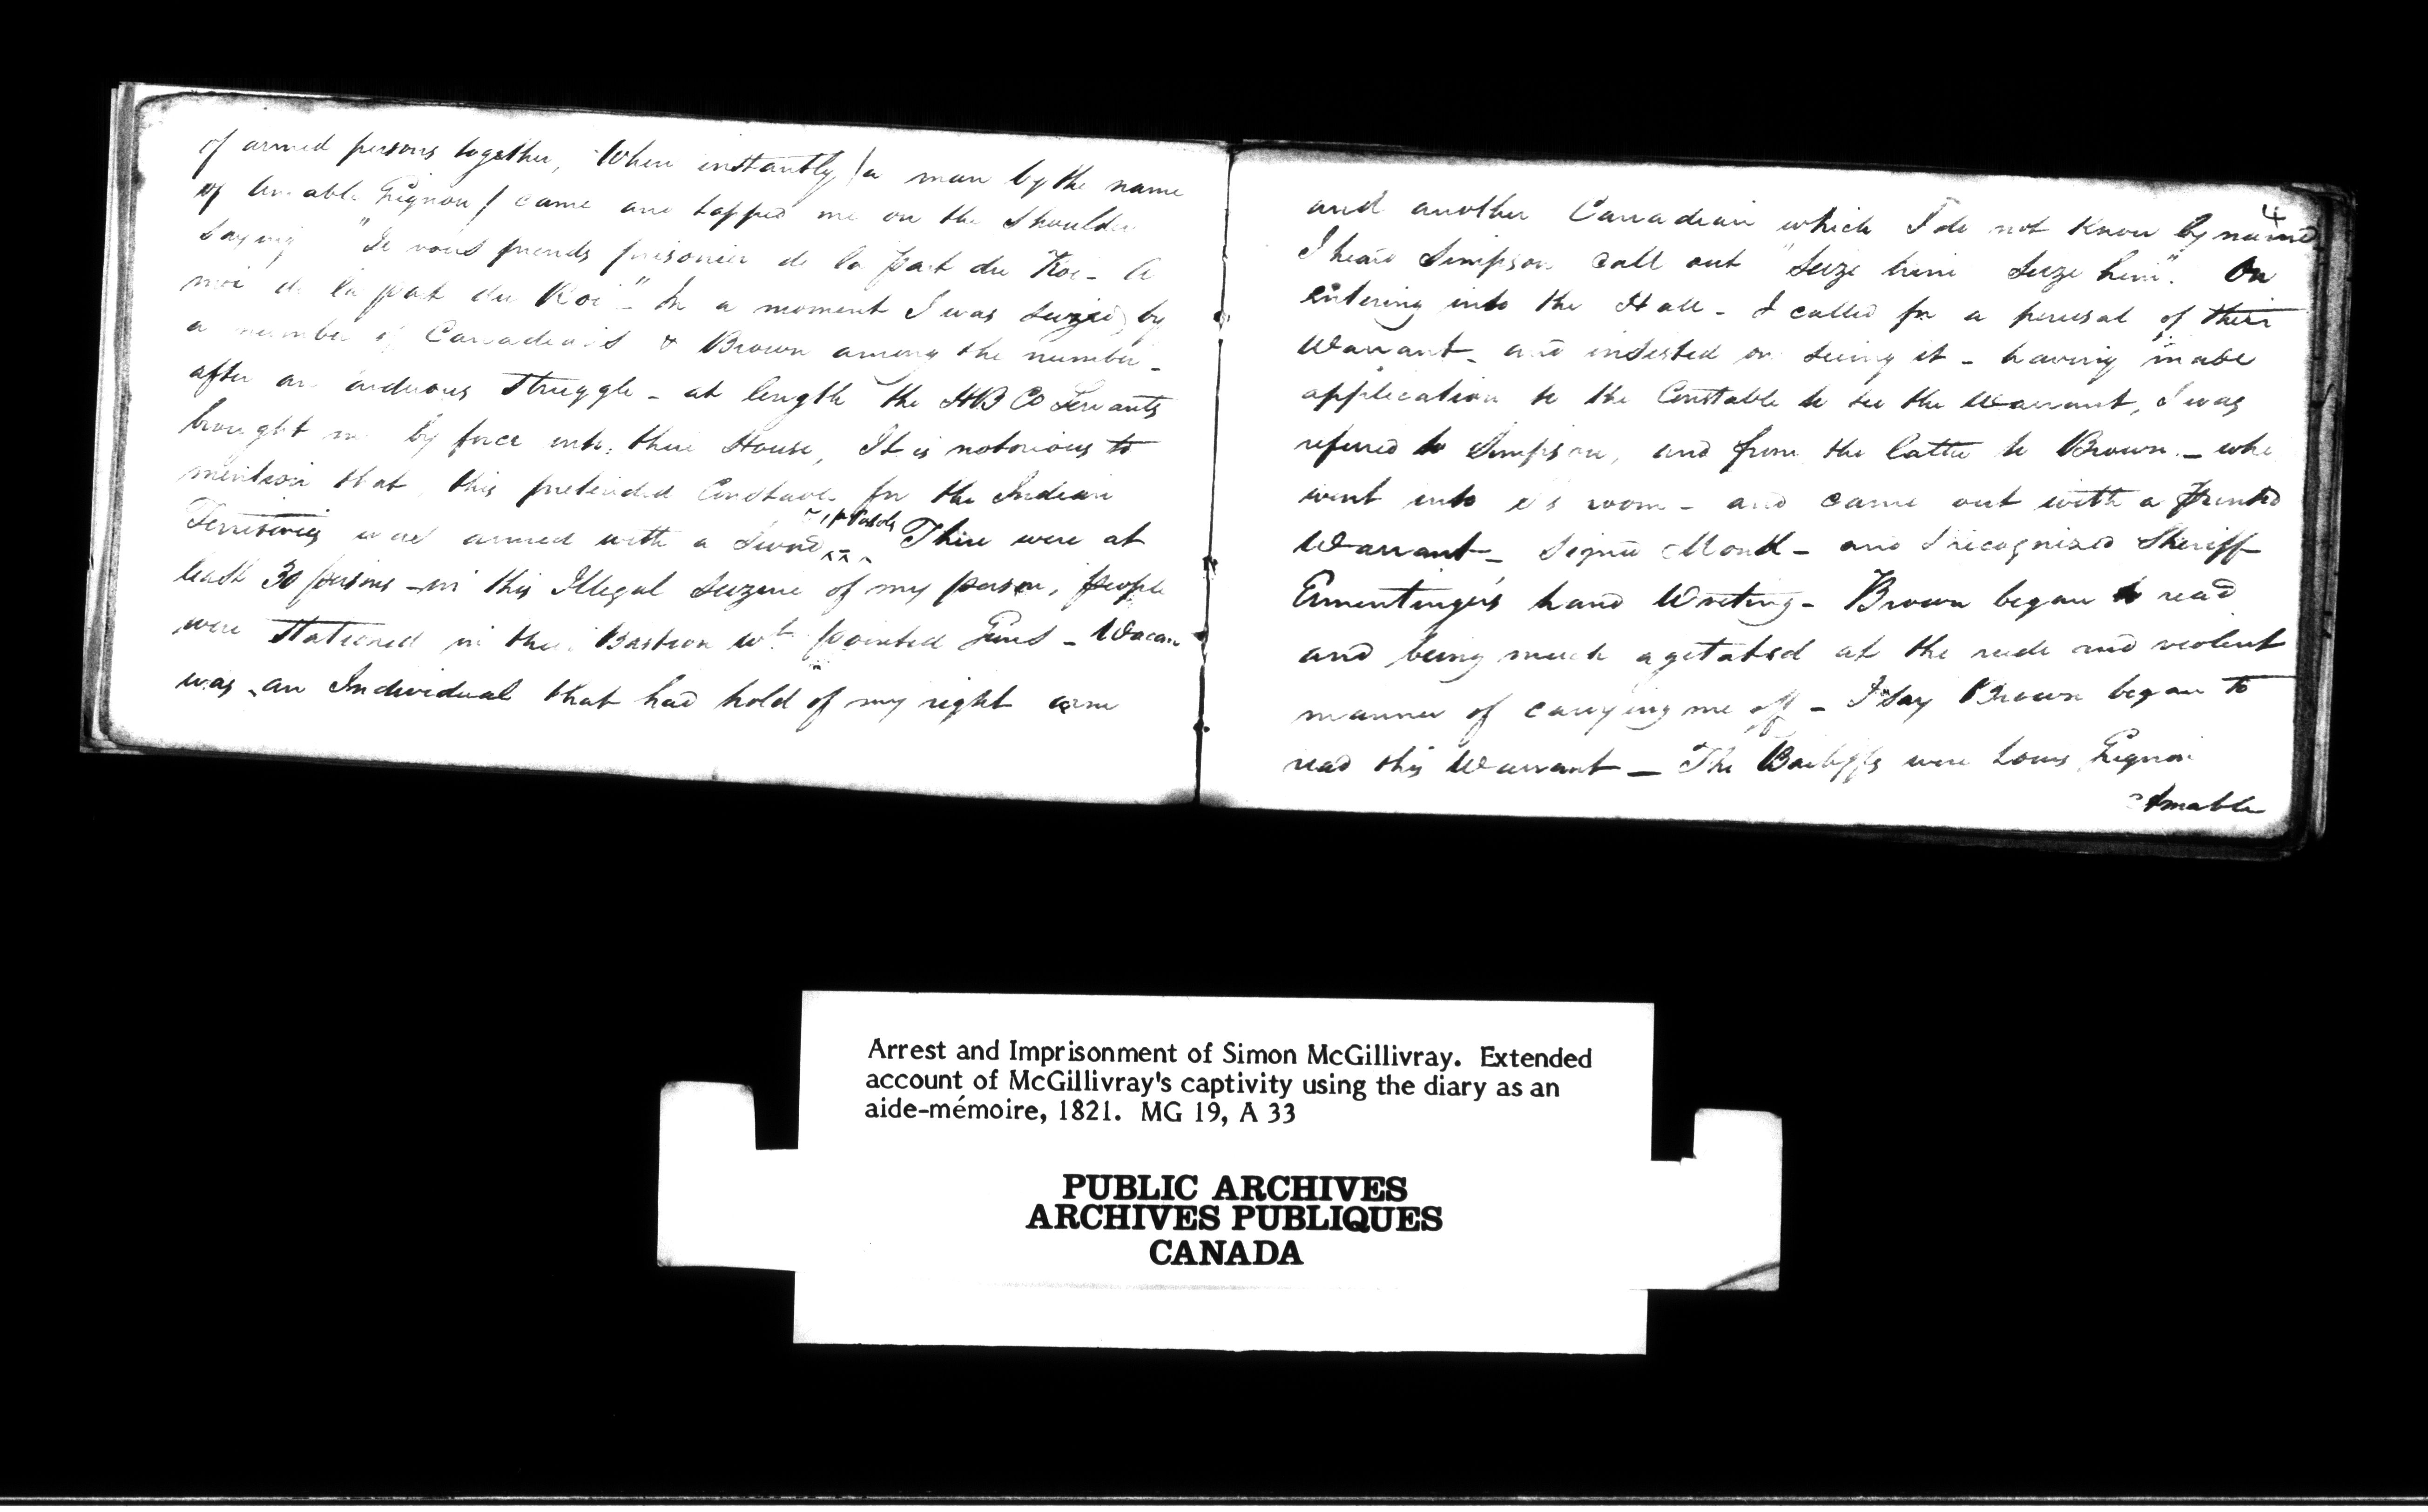 of armed persons together, When instantly /a man by the name
of Amable Gignon/ came and tapped me on the Shoulder
saying "Je vous prends prisonier de la part du Roi - A
moi de la part du Roi" - In a moment I was seized by
a number of Canadians & Brown among the number -
after an arduous struggle - at length the HB Co Servants
brought me by force into their House, It is notorious to
mention that, this pretended Constable for the Indian
Territories was armed with a Sword & Pistols There were at
least 30 persons - in this Illegal Seizure of my person, people
were stationed in the Bastion wt. pointed Guns - Wacan
was an Individual that had hold of my right arm
4
and another Canadian which I do not know by name
I heard Simpson call out "Seize him Seize him". On
entering into the Hall - I called for a perusal of their
Warrant - and insisted on seeing it - having made
application to the Constable to see the Warrant, I was
referred to Simpson, and from the latter to Brown - who
went into room - and came out with a Printed
Warrant - Signed Monk - and I recognized Sheriff
Ermentinger's hand Writing - Brown began to read
and being much agetated at the rude and violent
manner of carrying me off - I say Brown began to
read this Warrant - The Bailiffs were Louis Gignon
Amable
Arrest and Imprisonment of Simon McGillivray. Extended
account of McGillivray's captivity using the diary as an
aide-mémoire, 1821. MG 19, A 33
PUBLIC ARCHIVES
ARCHIVES PUBLIQUES
CANADA